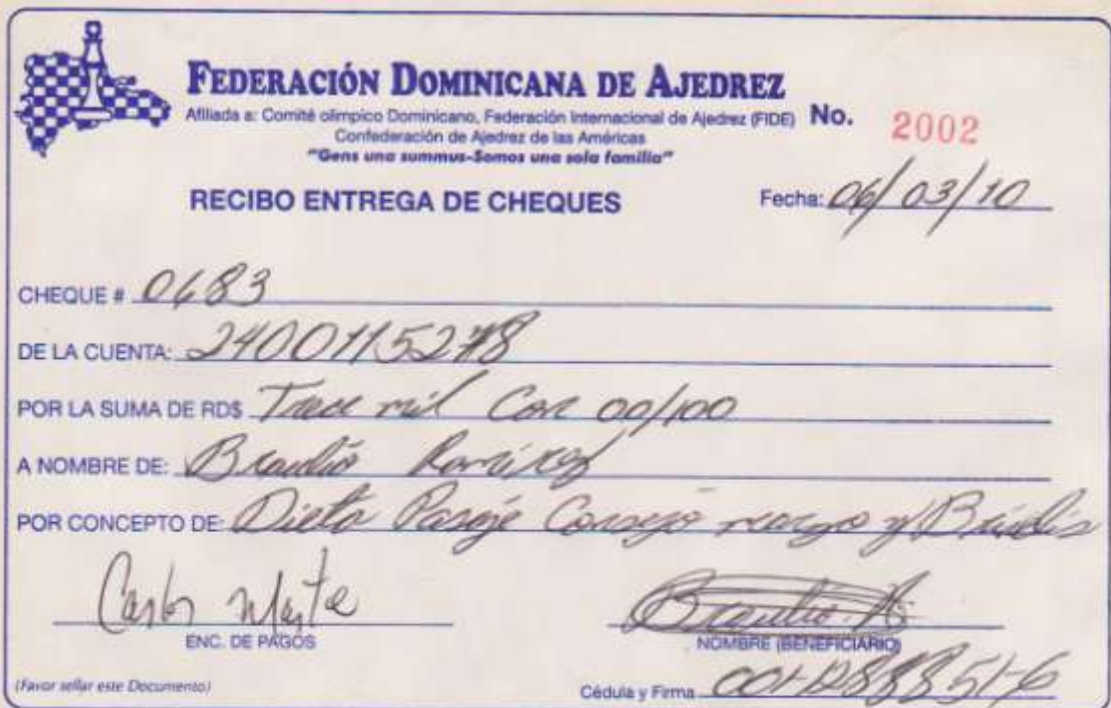 FEDERACIÓN DOMINICANA DE AJEDREZ
Afiliada a: Comité olímpico Dominicano, Federación Internacional de Ajedrez (FIDE) No. 2002
Confederación de Ajedrez de las Américas
"Gens una summus-Somos una sola familia"
RECIBO ENTREGA DE CHEQUES Fecha: 06/03/10
CHEQUE # 0683
DE LA CUENTA: 2400115278
POR LA SUMA DE RD$ Trece mil Con 00/100
A NOMBRE DE: Braulio Ramirez
POR CONCEPTO DE: Dieta Pasaje Consejo marzo y
Carlos Marte Braulio
ENC. DE PAGOS NOMBRE (BENEFICIARIO)
(Favor sellar este Documento) Cédula y Firma